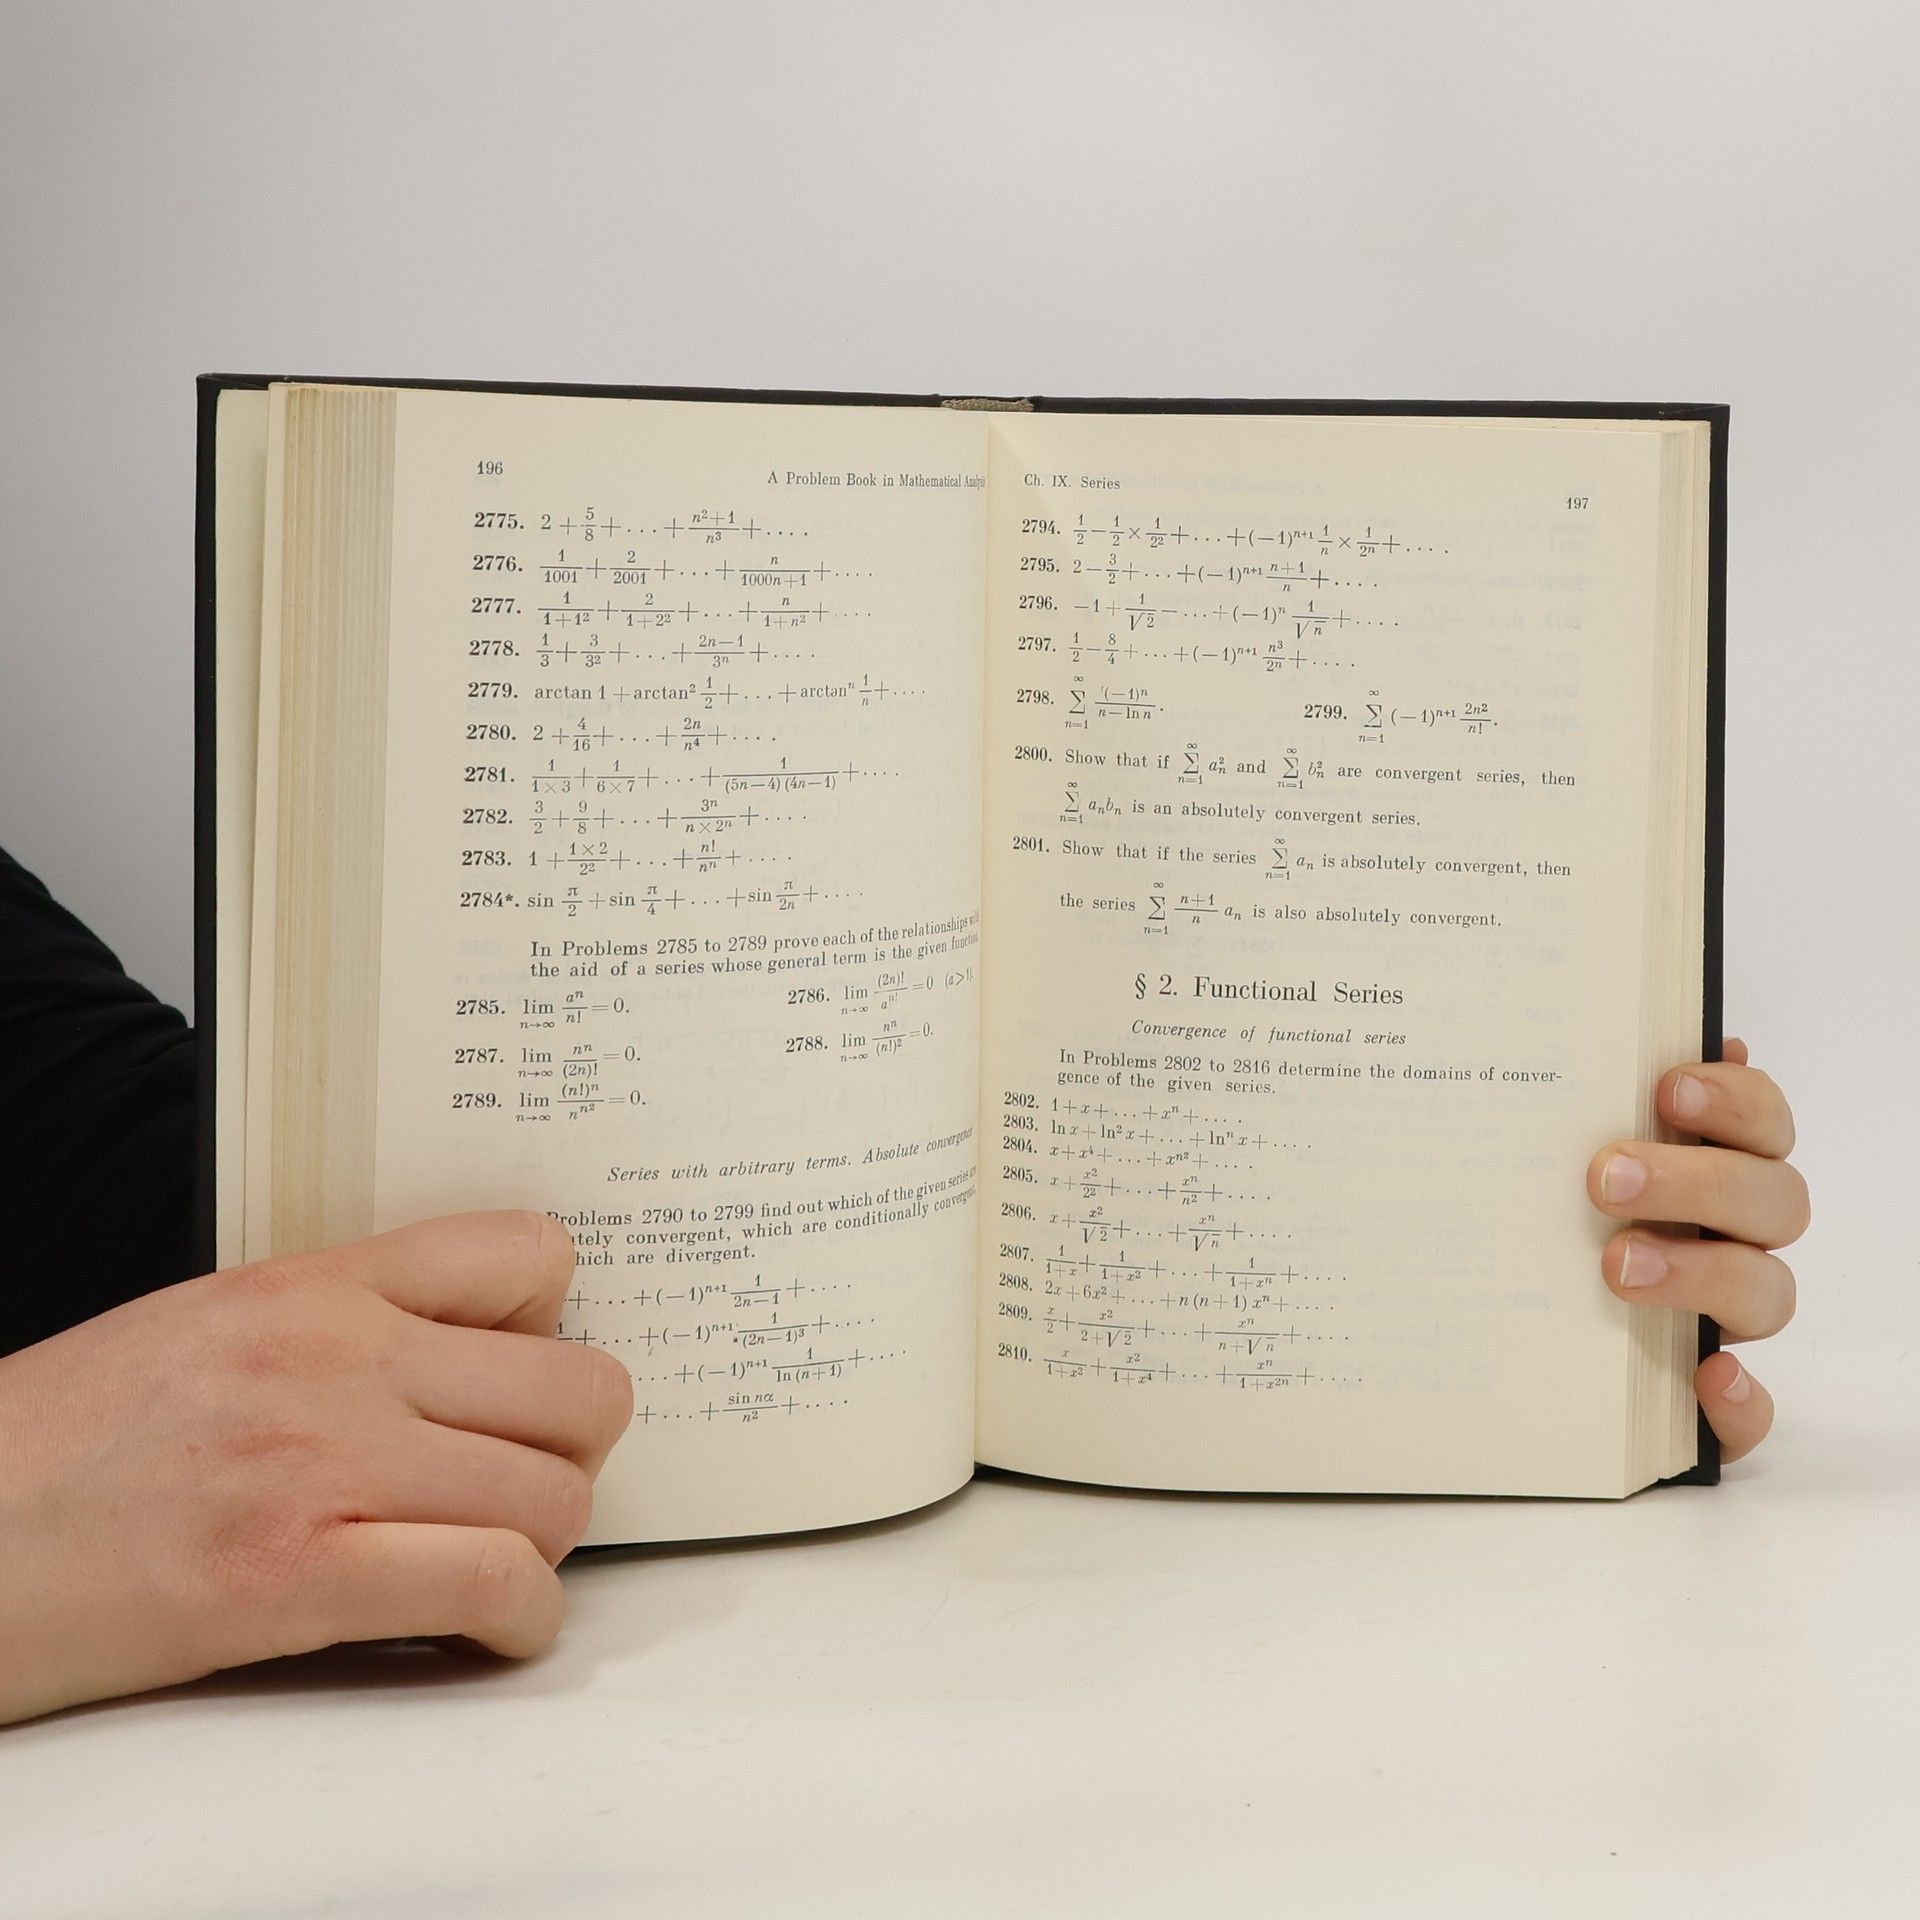 196
A Problem Book in Mathematical Analysis
2775. 2 + 5/8 + ... + (n²+1)/n³ + ....
2776. 1/1001 + 2/2001 + ... + n/(1000n+1) + ....
2777. 1/(1+1²) + 2/(1+2²) + ... + n/(1+n²) + ....
2778. 1/3 + 3/3² + ... + (2n−1)/3ⁿ + ....
2779. arctan 1 + arctan² 1/2 + ... + arctanⁿ 1/n + ....
2780. 2 + 4/16 + ... + 2n/n⁴ + ....
2781. 1/(1×3) + 1/(6×7) + ... + 1/((5n−4)(4n−1)) + ....
2782. 3/2 + 9/8 + ... + 3ⁿ/(n×2ⁿ) + ....
2783. 1 + (1×2)/2² + ... + n!/nⁿ + ....
2784*. sin π/2 + sin π/4 + ... + sin π/2n + ....
In Problems 2785 to 2789 prove each of the relationships with
the aid of a series whose general term is the given function.
2785. lim n→∞ aⁿ/n! = 0. 2786. lim n→∞ (2n)!/a^(n!) = 0 (a>1).
2787. lim n→∞ nⁿ/(2n)! = 0. 2788. lim n→∞ nⁿ/(n!)² = 0.
2789. lim n→∞ (n!)ⁿ/n^(n²) = 0.
Series with arbitrary terms. Absolute convergence
Problems 2790 to 2799 find out which of the given series are
tely convergent, which are conditionally convergent,
hich are divergent.
+ ... + (−1)ⁿ⁺¹ 1/(2n−1) + ....
+ ... + (−1)ⁿ⁺¹ 1/(2n−1)³ + ....
... + (−1)ⁿ⁺¹ 1/ln (n+1) + ....
+ ... + sin nα/n² + ....
Ch. IX. Series
197
2794. 1/2 − 1/2 × 1/2² + ... + (−1)ⁿ⁺¹ 1/n × 1/2ⁿ + ....
2795. 2 − 3/2 + ... + (−1)ⁿ⁺¹ (n+1)/n + ....
2796. −1 + 1/√2 − ... + (−1)ⁿ 1/√n + ....
2797. 1/2 − 8/4 + ... + (−1)ⁿ⁺¹ n³/2ⁿ + ....
2798. ∑ n=1 ∞ (−1)ⁿ/(n − ln n). 2799. ∑ n=1 ∞ (−1)ⁿ⁺¹ 2n²/n!.
2800. Show that if ∑ n=1 ∞ aₙ² and ∑ n=1 ∞ bₙ² are convergent series, then
∑ n=1 ∞ aₙbₙ is an absolutely convergent series.
2801. Show that if the series ∑ n=1 ∞ aₙ is absolutely convergent, then
the series ∑ n=1 ∞ (n+1)/n aₙ is also absolutely convergent.
§ 2. Functional Series
Convergence of functional series
In Problems 2802 to 2816 determine the domains of conver-
gence of the given series.
2802. 1 + x + ... + xⁿ + ....
2803. ln x + ln² x + ... + lnⁿ x + ....
2804. x + x⁴ + ... + x^(n²) + ....
2805. x + x²/2² + ... + xⁿ/n² + ....
2806. x + x²/√2 + ... + xⁿ/√n + ....
2807. 1/(1+x) + 1/(1+x²) + ... + 1/(1+xⁿ) + ....
2808. 2x + 6x² + ... + n (n+1) xⁿ + ....
2809. x/2 + x²/(2+√2) + ... + xⁿ/(n+√n) + ....
2810. x/(1+x²) + x²/(1+x⁴) + ... + xⁿ/(1+x²ⁿ) + ....